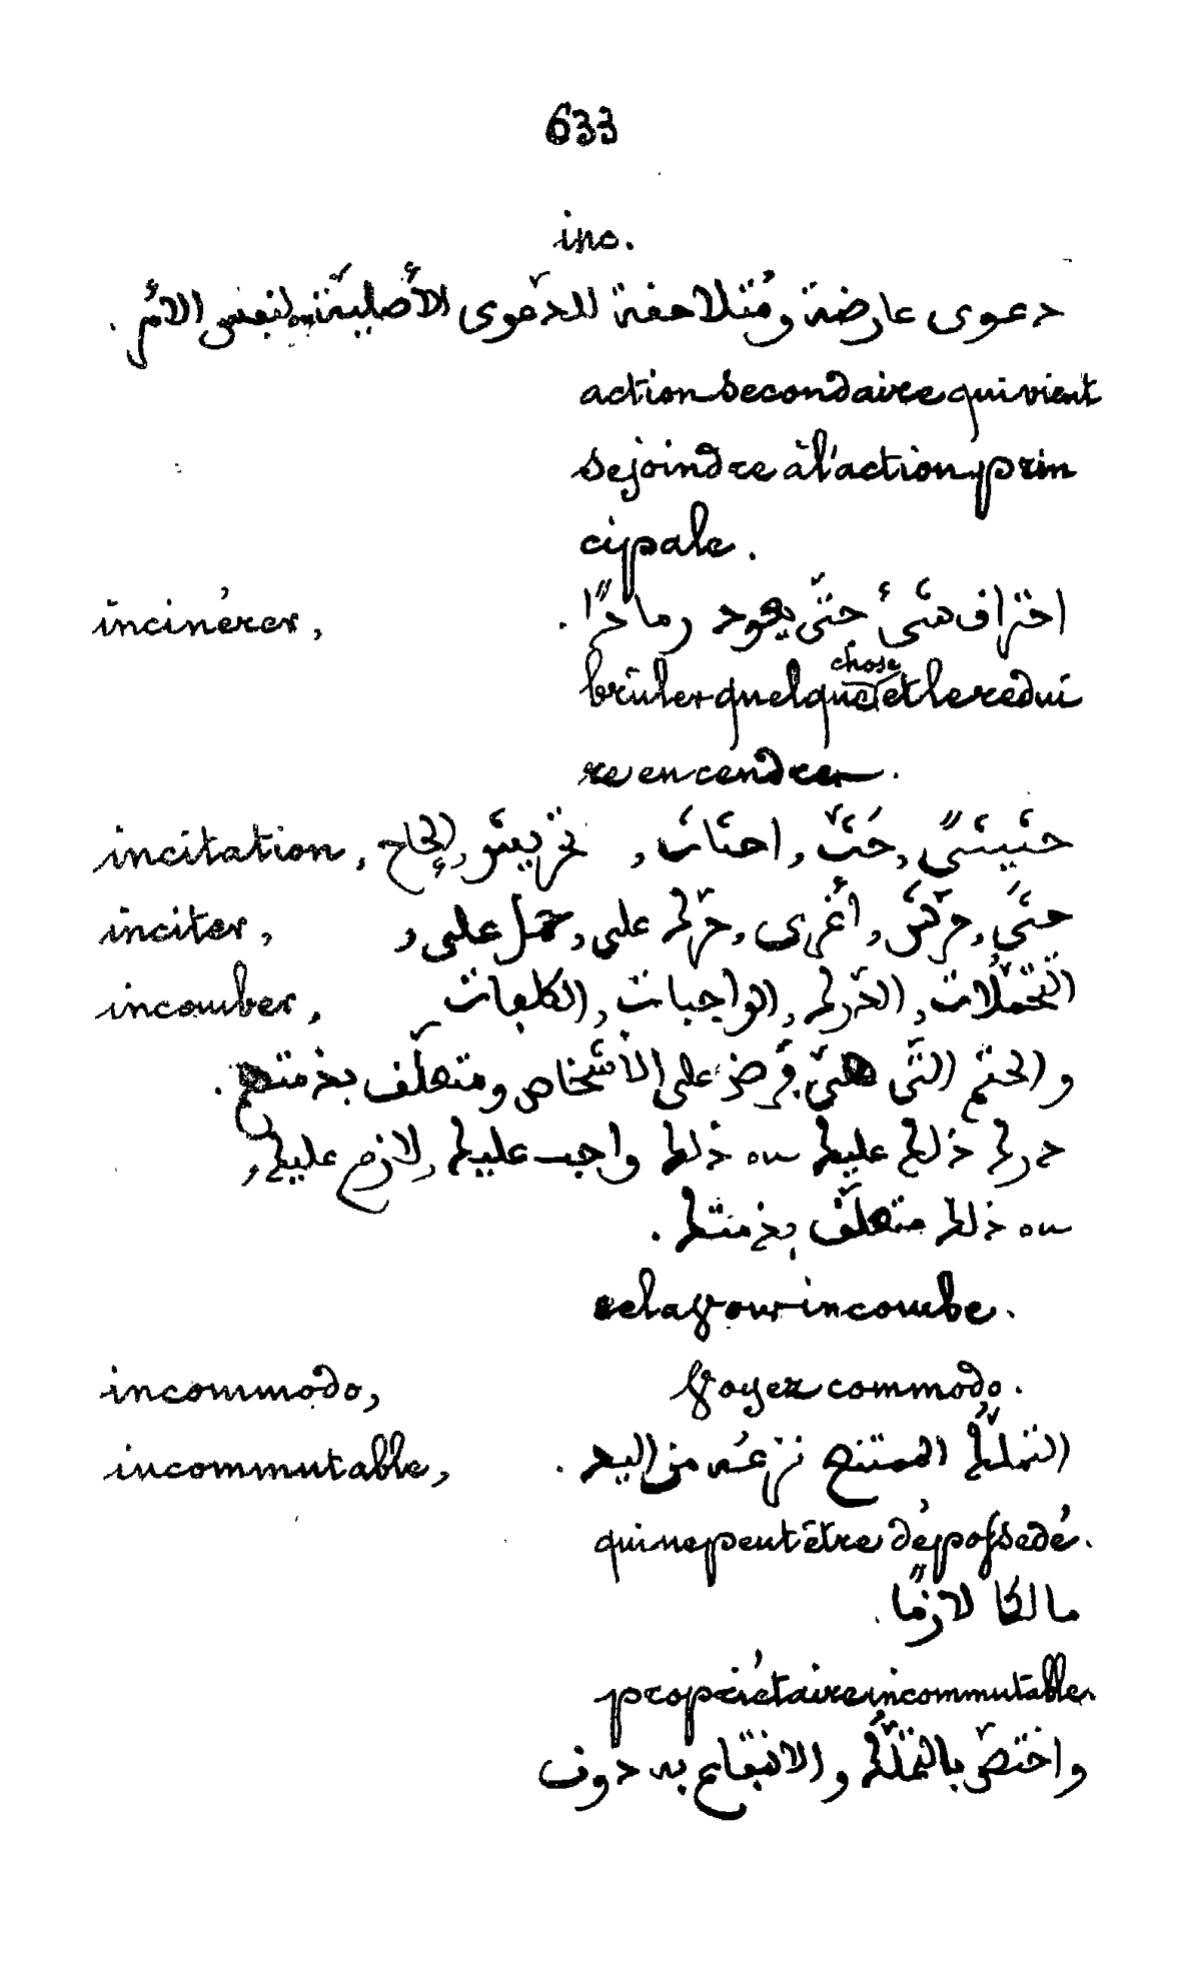 633
inc.
دعوى عارضة ومُتلاحقة للدّعوى الأصليّة لنفس الأمْر.
action secondaire qui vient
se joindre à l'action prin
cipale.
incinérer, احتراق شىء حتّى يعود رمادًا.
brûler quelque chose et le redui
re en cendre.
incitation, حثيثى, حَثّ, احثاث, تحريض, إلحاح,
inciter, حثَّ, حرّض, أغرى, حرّك على, حمل على,
incomber, التّحمّلات, الدّرك, الواجبات, الكلفات
والحتم التّى هىّ فرض على الأشخاص ومتعلّق بذمتهم.
درك ذلك عليك ou ذلك واجب عليك, لازم عليك,
ou ذلك متعلّق بذمتك.
cela vous incombe.
incommodo, Voyez commodo.
incommutable, التملّك الممتنع نزعُه من اليد.
qui ne peut être dépossedé.
مالكا لازمًا.
propriétaire incommutable.
واختصّ بالتملّك والانتفاع به دون